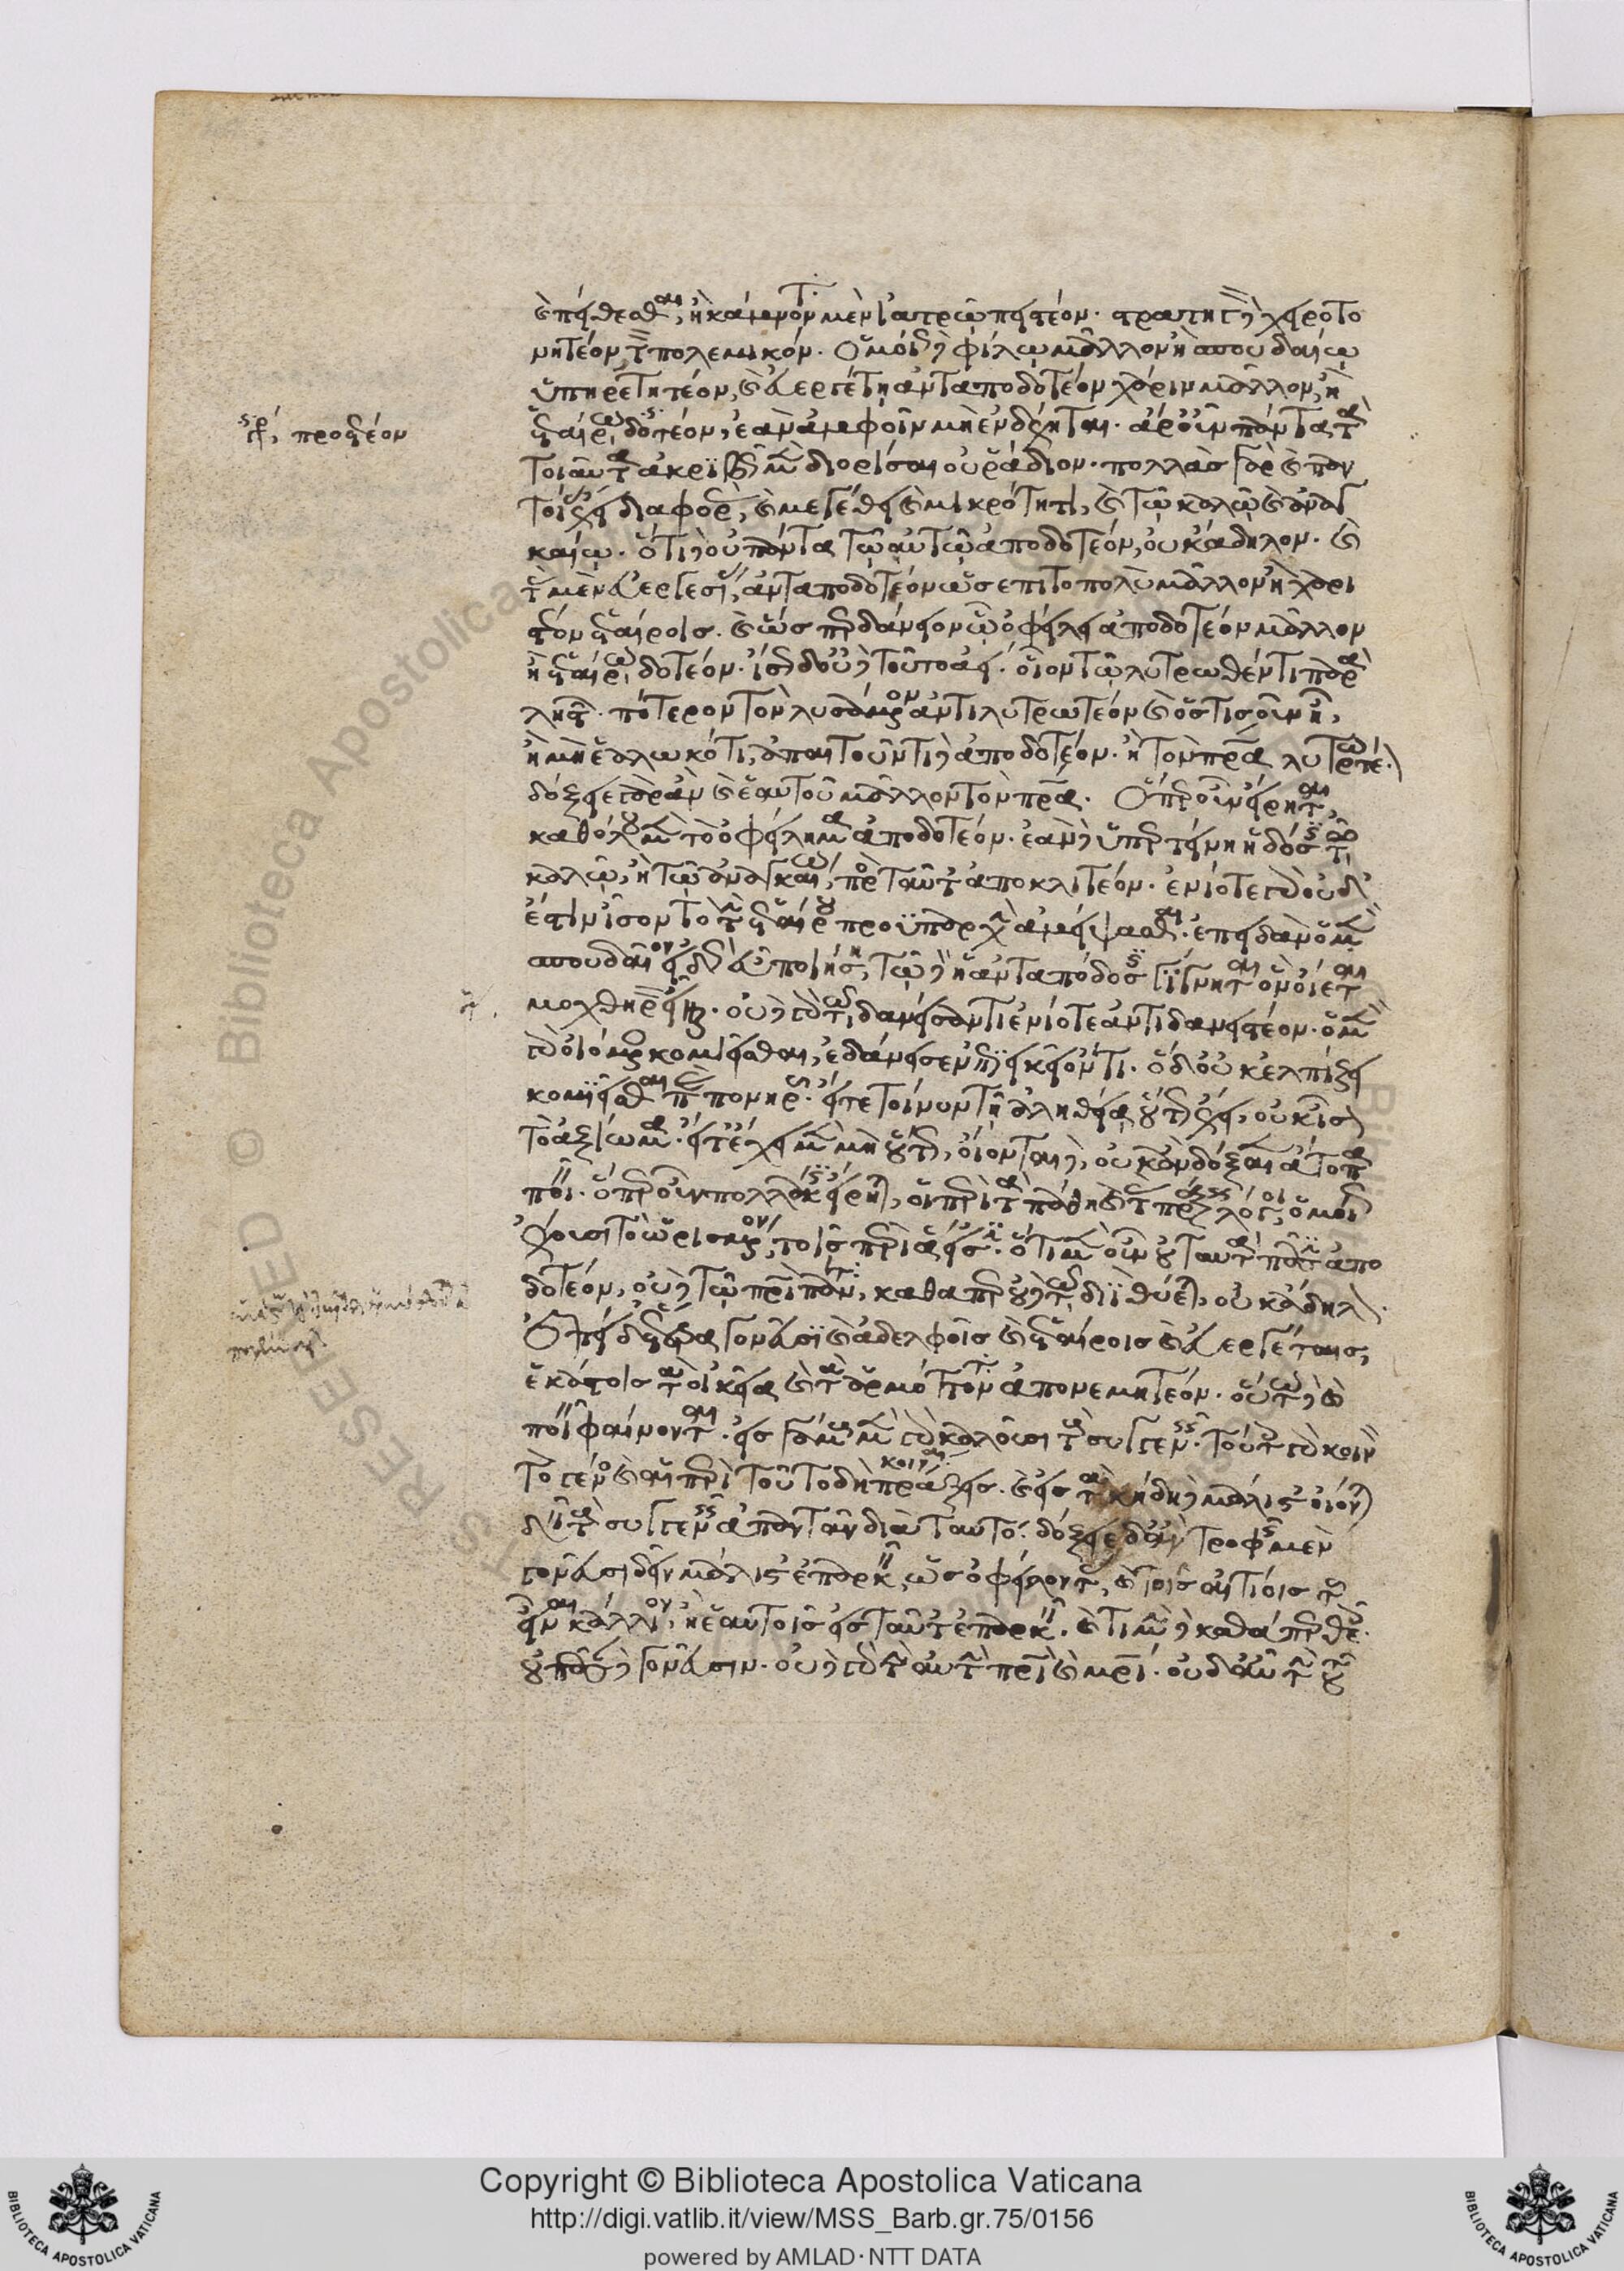 καὶ πείθεσθαι, ἢ κάμνοντα μὲν ἰατρῷ πιστέον· στρατηγὸν δὲ χειροτο
νητέον τὸν πολεμικόν. ὁμοίως δὲ φίλῳ μᾶλλον ἢ σπουδαίῳ
ὑπηρετητέον, καὶ εὐεργέτῃ ἀνταποδοτέον χάριν μᾶλλον, ἢ
γρ, προετέον ἑταίρῳ δοτέον, ἐὰν ἀμφοῖν μὴ ἐνδέχηται. ἆρ' οὖν πάντα τὰ
τοιαῦτα ἀκριβῶς μὲν διορίσαι οὐ ῥάδιον. πολλὰς γὰρ καὶ παν
τοίας ἔχει διαφοράς, καὶ μεγέθει καὶ μικρότητι, καὶ τῷ καλῷ καὶ ἀναγ
καίῳ. ὅτι δ' οὐ πάντα τῷ αὐτῷ ἀποδοτέον, οὐκ ἄδηλον. καὶ
τὰς μὲν εὐεργεσίας, ἀνταποδοτέον ὡς ἐπιτοπολὺ μᾶλλον ἢ χαρι
στέον ἑταίροις. καὶ ὥσπερ δάνειον ᾧ ὀφείλει ἀποδοτέον μᾶλλον
ἢ ἑταίρῳ δοτέον. ἴσως δ' οὐδὲ τοῦτο ἀεί. οἷον τῷ λυτρωθέντι παρὰ
λῃστῶν. πότερον τὸν λυσάμενον ἀντιλυτρωτέον καὶ ὁστισοῦν ᾖ,
ἢ μὴ ἑαλωκότι, ἀπαιτοῦντι δὲ ἀποδοτέον. ἢ τὸν πατέρα λυτρωτέον.
δόξειε γὰρ ἂν καὶ ἑαυτοῦ μᾶλλον τὸν πατέρα. ὅπερ οὖν εἴρηται,
καθόλου μὲν τὸ ὀφείλημα ἀποδοτέον. ἐὰν δ' ὑπερτείνῃ ἡ δόσις τῷ
καλῷ, ἢ τῷ ἀναγκαίῳ, πρὸς ταῦτ' ἀποκλιτέον. ἐνίοτε γὰρ οὐδ'
ἐστὶν ἴσον τὸ τὴν ἑταίρου προϋπαρχὴν ἀμείψασθαι. ἐπειδὰν ὁ μὲν
σπουδαῖον εἰδὼς εὖ ποιήσῃ, τῷ δ' ἡ ἀνταπόδοσις γίγνηται ὃν οἴεται
μοχθηρὸν εἶναι. οὐδὲ γὰρ τῷ δανείσαντι ἐνίοτε ἀντιδανειστέον. ὁ μὲν
γὰρ οἰόμενος κομιεῖσθαι, ἐδάνεισεν ἐπιεικεῖ ὄντι. ὁ δ' οὐκ ἐλπίζει
κομιεῖσθαι παρὰ πονηροῦ. εἴτε τοίνυν τῇ ἀληθείᾳ οὕτως ἔχει, οὐκ ἴσον
τὸ ἀξίωμα. εἴτε ἔχει μὲν μὴ οὕτως, οἴονται δέ, οὐκ ἂν δόξαιεν ἄτοπα
ποιεῖν. ὅπερ οὖν πολλάκις εἴρηται, οἱ περὶ τὰ πάθη καὶ τὰς πράξεις λόγοι, ὁμοίως
ἔχουσι τὸ ὡρισμένον, τοῖς περὶ ἅ εἰσιν. ὅτι μὲν οὖν οὐ ταυτὰ πᾶσιν ἀπο
δοτέον, οὐδὲ τῷ πατρὶ πάντα, καθάπερ οὐδὲ τῷ διῒ θύεται, οὐκ ἄδηλον.
ἐπεὶ δ' ἕτερα γονεῦσι καὶ ἀδελφοῖς καὶ ἑταίροις καὶ εὐεργέταις,
ἑκάστοις τὰ οἰκεῖα καὶ τὰ ἁρμόττοντα ἀπονεμητέον. οὕτω δὲ καὶ
ποιεῖν φαίνονται. εἰς γάμους μὲν γὰρ καλοῦσι τοὺς συγγενεῖς. τούτοις γὰρ κοινὸν
τὸ γένος καὶ αἱ περὶ τοῦτο δὴ κοιναὶ πράξεις. καὶ εἰς τὰ κήδη δὲ μάλιστ' οἴονται
δεῖν τοὺς συγγενεῖς ἀπαντᾶν διὰ ταυτό. δόξειε δ' ἂν τροφῆς μὲν
γονεῦσι δεῖν μάλιστ' ἐπαρκεῖν, ὡς ὀφείλοντας, καὶ τοῖς αἰτίοις τοῦ
εἶναι κάλλιον, ἢ ἑαυτοῖς εἰς ταῦτ' ἐπαρκεῖν. καὶ τιμὴν δὲ καθάπερ θεοῖς.
οὐ πᾶσαν δὲ γονεῦσιν. οὐδὲ γὰρ τὴν αὐτὴν πατρὶ καὶ μητρί. οὐδ' αὖ τὴν τοῦ
Copyright © Biblioteca Apostolica Vaticana
http://digi.vatlib.it/view/MSS_Barb.gr.75/0156
powered by AMLAD·NTT DATA
BIBLIOTECA APOSTOLICA VATICANA
BIBLIOTECA APOSTOLICA VATICANA